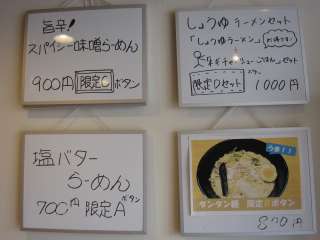 旨辛!
スパイシー味噌らーめん
900円 限定C ボタン
しょうゆラーメンセット
「しょうゆラーメン」
セット
限定Dセット 1000円
塩バター
らーめん
700円 限定A ボタン
うまい!!
タンタン麺 限定Bボタン
870円